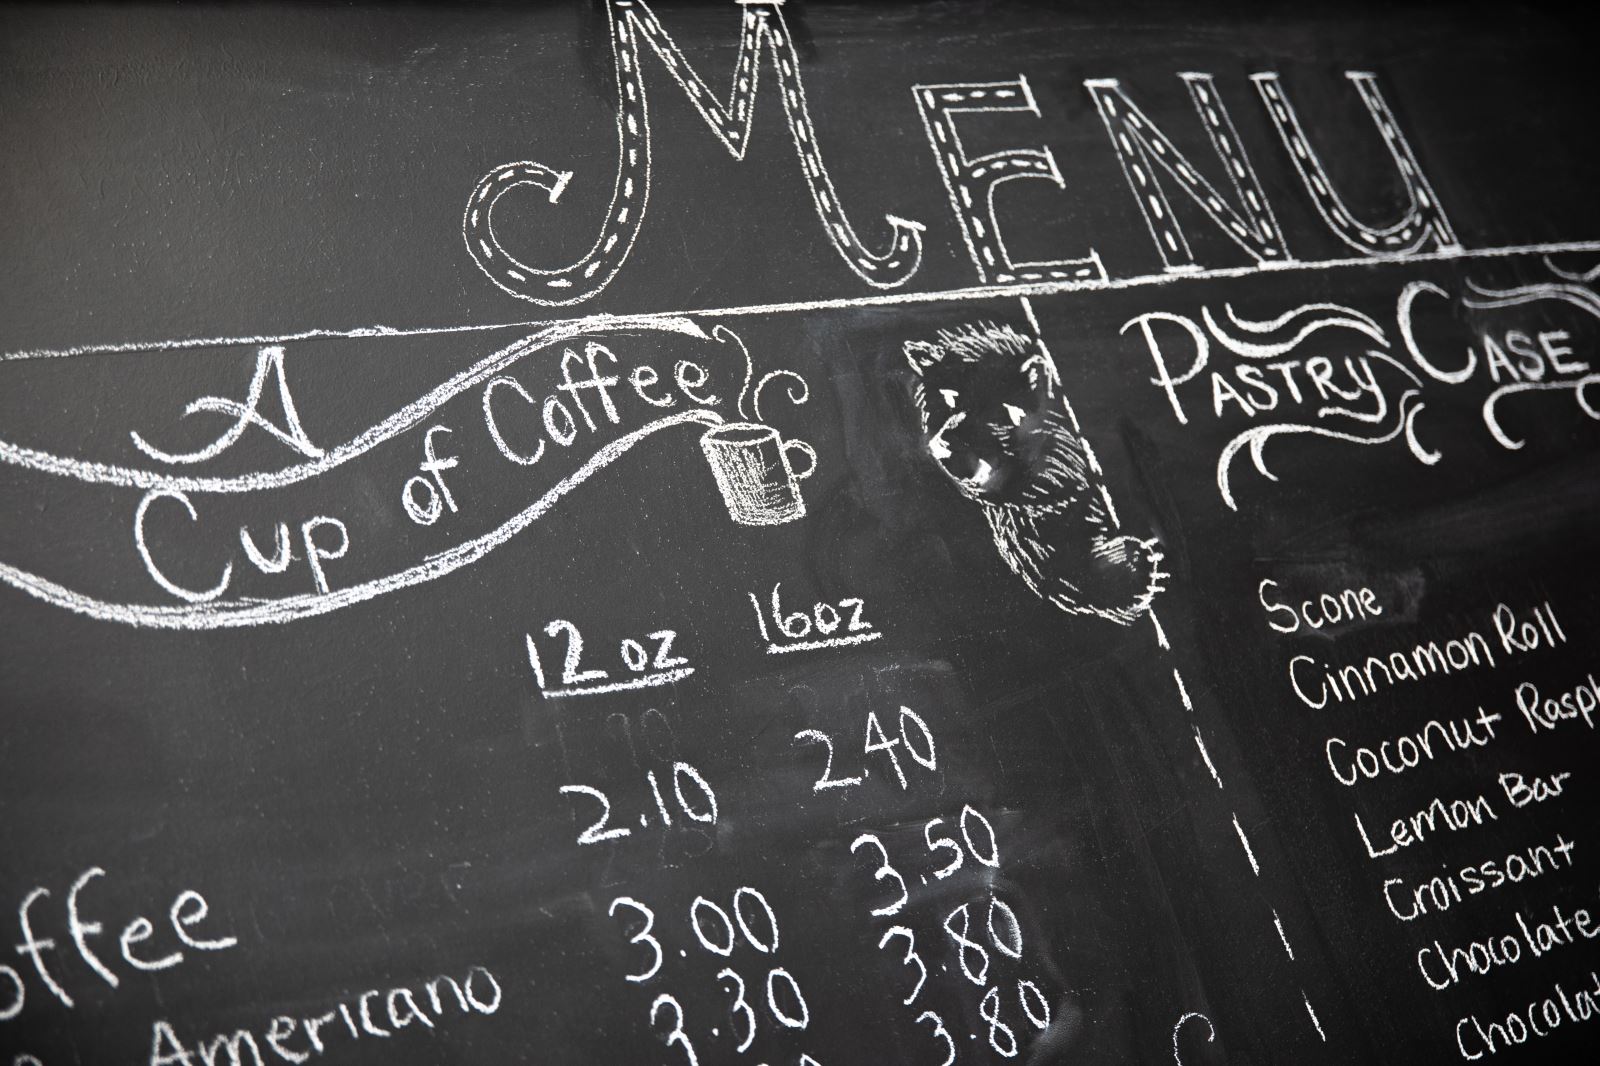 MENU
A
Cup of Coffee
12 oz 16oz
2.10 2.40
offee 3.00 3.50
Americano 3.30 3.80
3.80
PASTRY CASE
Scone
Cinnamon Roll
Coconut Rasp
Lemon Bar
Croissant
Chocolate
Chocolat